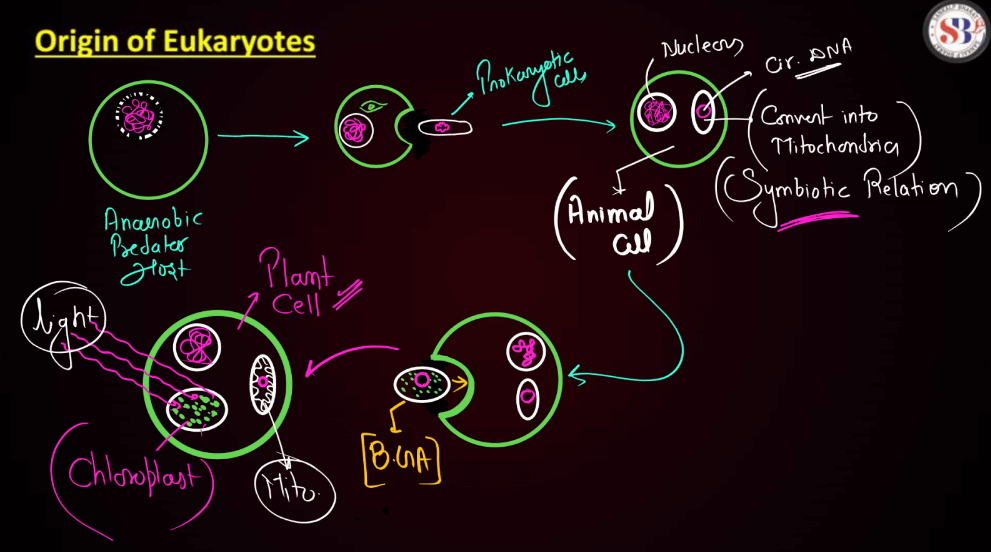 Origin of Eukaryotes
SB
Nucleus
Cir. DNA
Prokaryotic
cells
Convent into
Mitochondria
(Symbiotic Relation)
Anaerobic
Predator
Host
(Animal
Cell)
Plant
Cell
light
[B.GA]
Chloroplast
Mito.